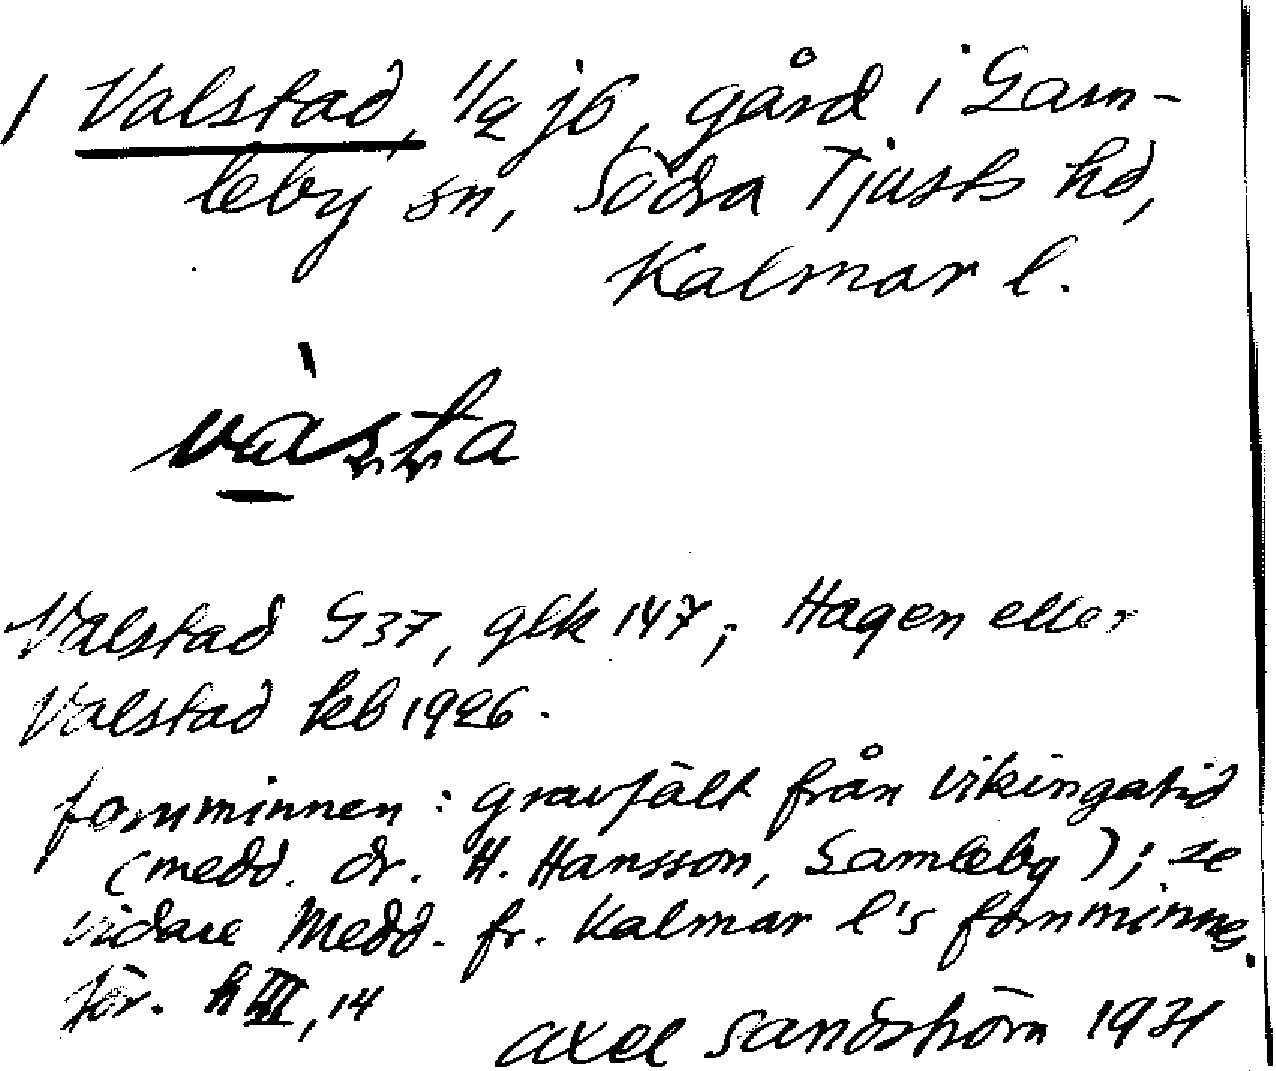 1 Valstad, 1/2 jb, gård i Gam-
leby sn, Södra Tjusts hd,
Kalmar l.
Valstad G37, glk 147; Hagen eller
Valstad kb 1926.
fornminnen: gravfält från vikingatid
(medd. dr. H. Hansson, Gamleby); se
vidare Medd. fr. Kalmar l's fornminnes
för. h III, 14
Axel Sandström 1931